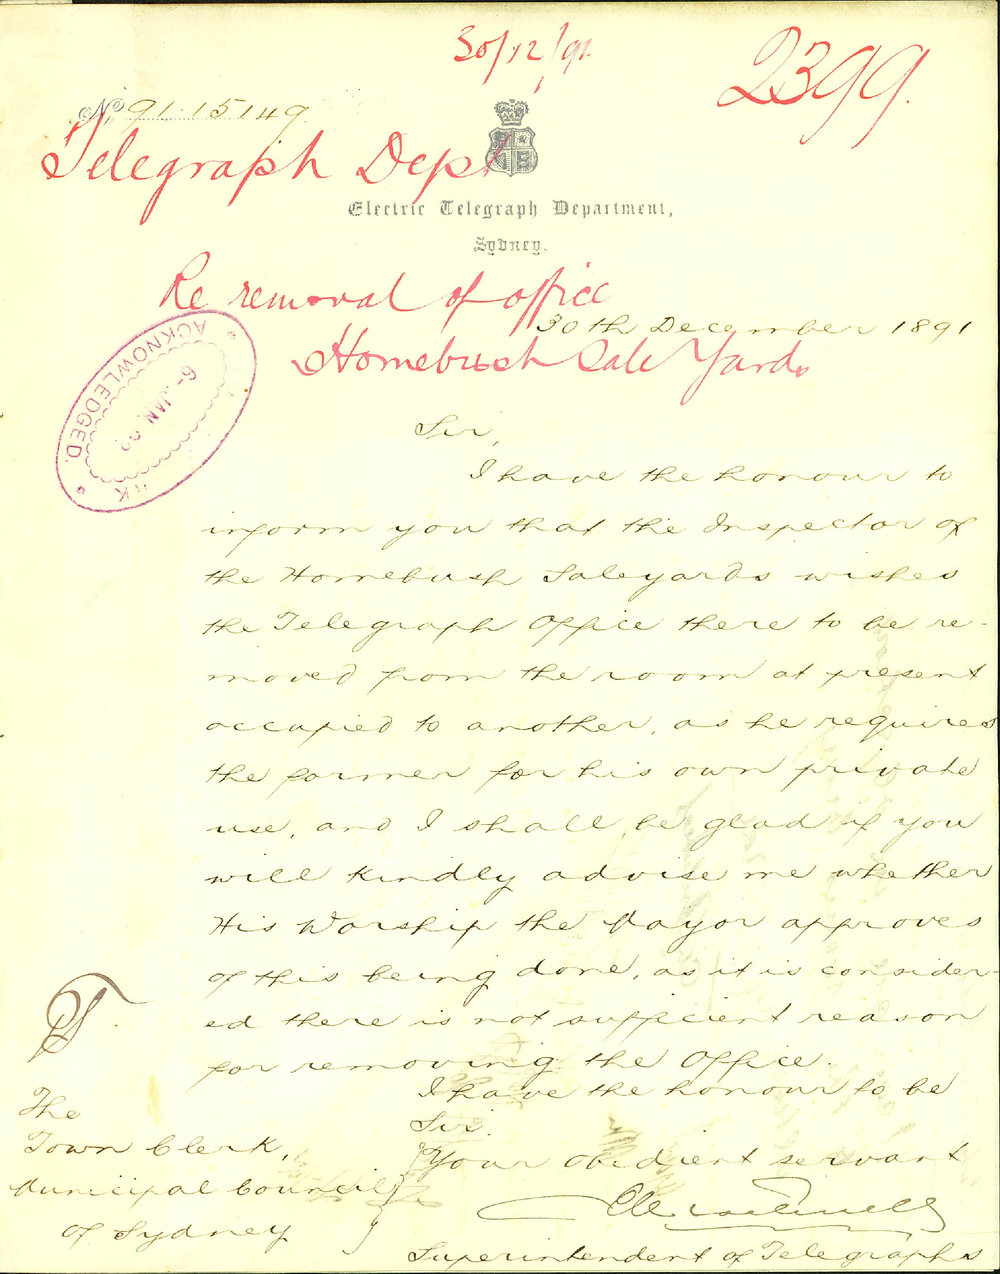 30/12/91.
2399.
No 91.15149
Telegraph Dept
Electric Telegraph Department,
Sydney.
Re removal of office
30th December 1891
Homebush Sale Yards
ACKNOWLEDGED.
6-JAN 92
Sir,
I have the honour to
inform you that the Inspector of
the Homebush Saleyards wishes
the Telegraph Office there to be re-
moved from the room at present
occupied to another, as he requires
the former for his own private
use, and I shall be glad if you
will kindly advise me whether
His Worship the Mayor approves
of this being done, as it is consider-
ed there is not sufficient reason
for removing the Office.
I have the honour to be
Sir.
Your obedient servant
Superintendent of Telegraphs
The
Town Clerk,
Municipal Council
of Sydney